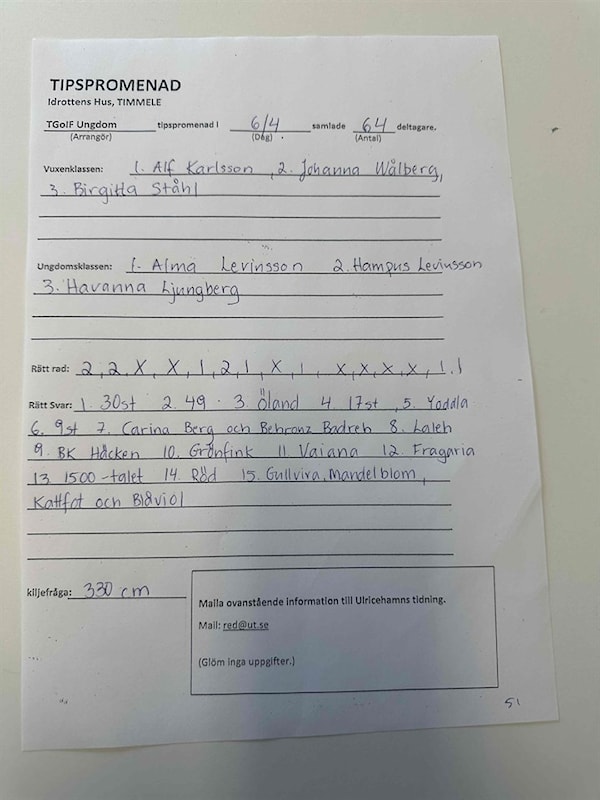 TIPSPROMENAD
Idrottens Hus, TIMMELE
TGoIF Ungdom tipspromenad i 6/4 samlade 64 deltagare.
(Arrangör) (Dag) (Antal)
Vuxenklassen: 1. Alf Karlsson, 2. Johanna Wålberg,
3. Birgitta Ståhl
Ungdomsklassen: 1. Alma Levinsson 2. Hampus Levinsson
3. Havanna Ljungberg
Rätt rad: 2, 2, X, X, 1, 2, 1, X, 1, X, X, X, X, 1, 1
Rätt Svar: 1. 30st 2. 49. 3. Öland 4. 17st, 5. Yoddla
6. 9st 7. Carina Berg och Behranz Badreh 8. Laleh
9. BK Häcken 10. Grönfink 11. Vaiana 12. Fragaria
13. 1500-talet 14. Röd 15. Gullviva, Mandelblom,
Kattfot och Blåviol
kiljefråga: 330 cm
Maila ovanstående information till Ulricehamns tidning.
Mail: red@ut.se
(Glöm inga uppgifter.)